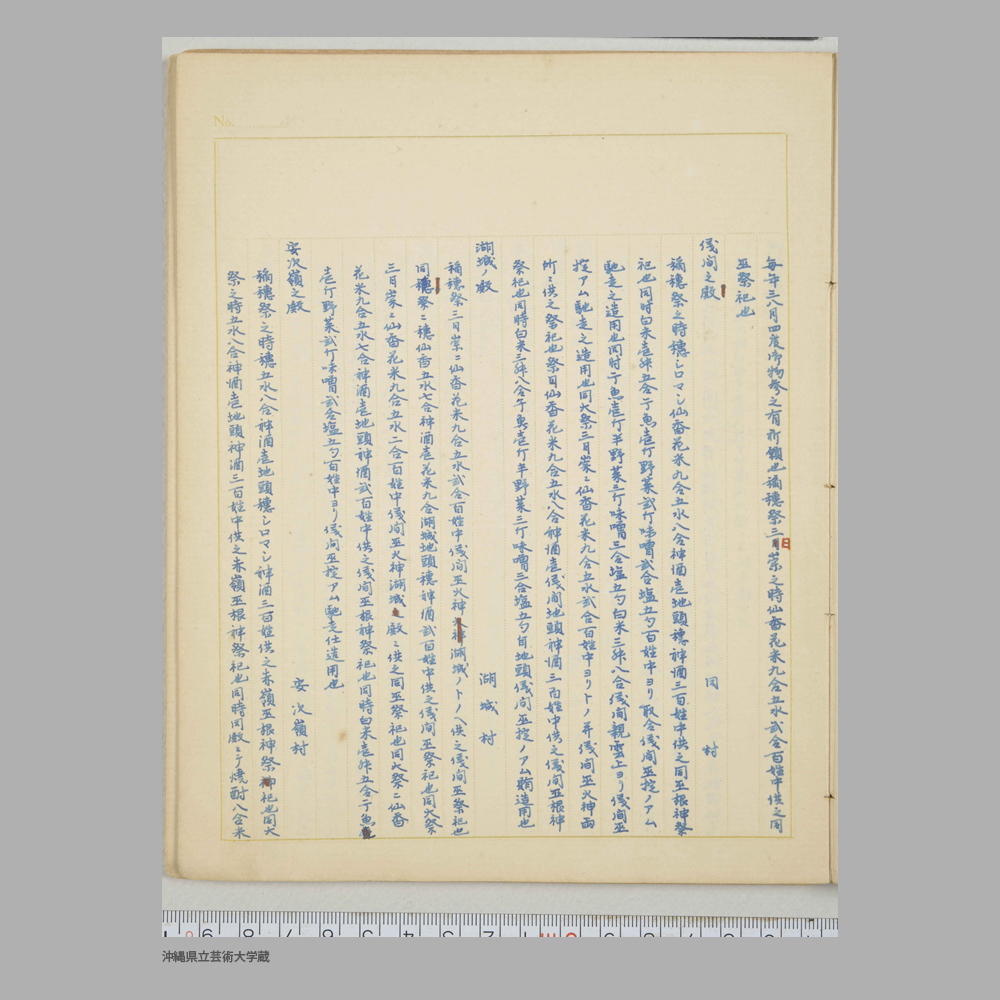 毎年三八月四度御物参之有祈願也稲穂祭三日崇之時仙香花米九合五水弐合百姓中供之同
巫祭祀也
儀間之殿 同村
稲穂祭之時穂シロマシ仙香花米九合五水八合神酒壱地頭穂神酒三百姓中供之同巫根神祭
祀也同時白米壱舛五合干魚壱斤野菜弐斤味噌弐合塩五勺百姓中ヨリ取合儀間巫掟ノアム
馳走之造用也同時干魚壱斤半野菜三斤味噌三合塩五勺白米三舛八合儀間親雲上ヨリ儀間巫
掟アム馳走之造用也同大祭三日崇ニ仙香花米九合五水弐合百姓中ヨリトノ并儀間巫火神両
所ニ供之祭祀也祭日仙香花米九合五水八合神酒壱儀間地頭神酒三百姓中供之儀間巫根神
祭祀也同時白米三舛八合干魚壱斤半野菜三斤味噌三合塩五勺自地頭儀間巫掟ノアム賄造用也
湖城ノ殿 湖城村
稲穂祭三日崇ニ仙香花米九合五水弐合百姓中儀間巫火神湖城ノトノヘ供之儀間巫祭祀也
同穂祭ニ穂仙香五水七合神酒壱花米九合湖城地頭穂神酒弐百姓中供之儀間巫祭祀也同大祭
三日崇ニ仙香花米九合五水二合百姓中儀間巫火神湖城殿ニ供之同巫祭祀也同大祭ニ仙香
花米九合五水七合神酒壱地頭神酒弐百姓中供之儀間巫根神祭祀也同時白米壱舛五合干魚
壱斤野菜弐斤味噌弐合塩五勺百姓中ヨリ儀間巫掟アム馳走仕造用也
安次嶺之殿 安次嶺村
稲穂祭之時穂五水八合神酒壱地頭穂シロマシ神酒三百姓供之赤嶺巫根神祭祀也同大
祭之時五水八合神酒壱地頭神酒三百姓中供之赤嶺巫根神祭祀也同時同殿ニテ焼酎八合米
No.
沖縄県立芸術大学蔵